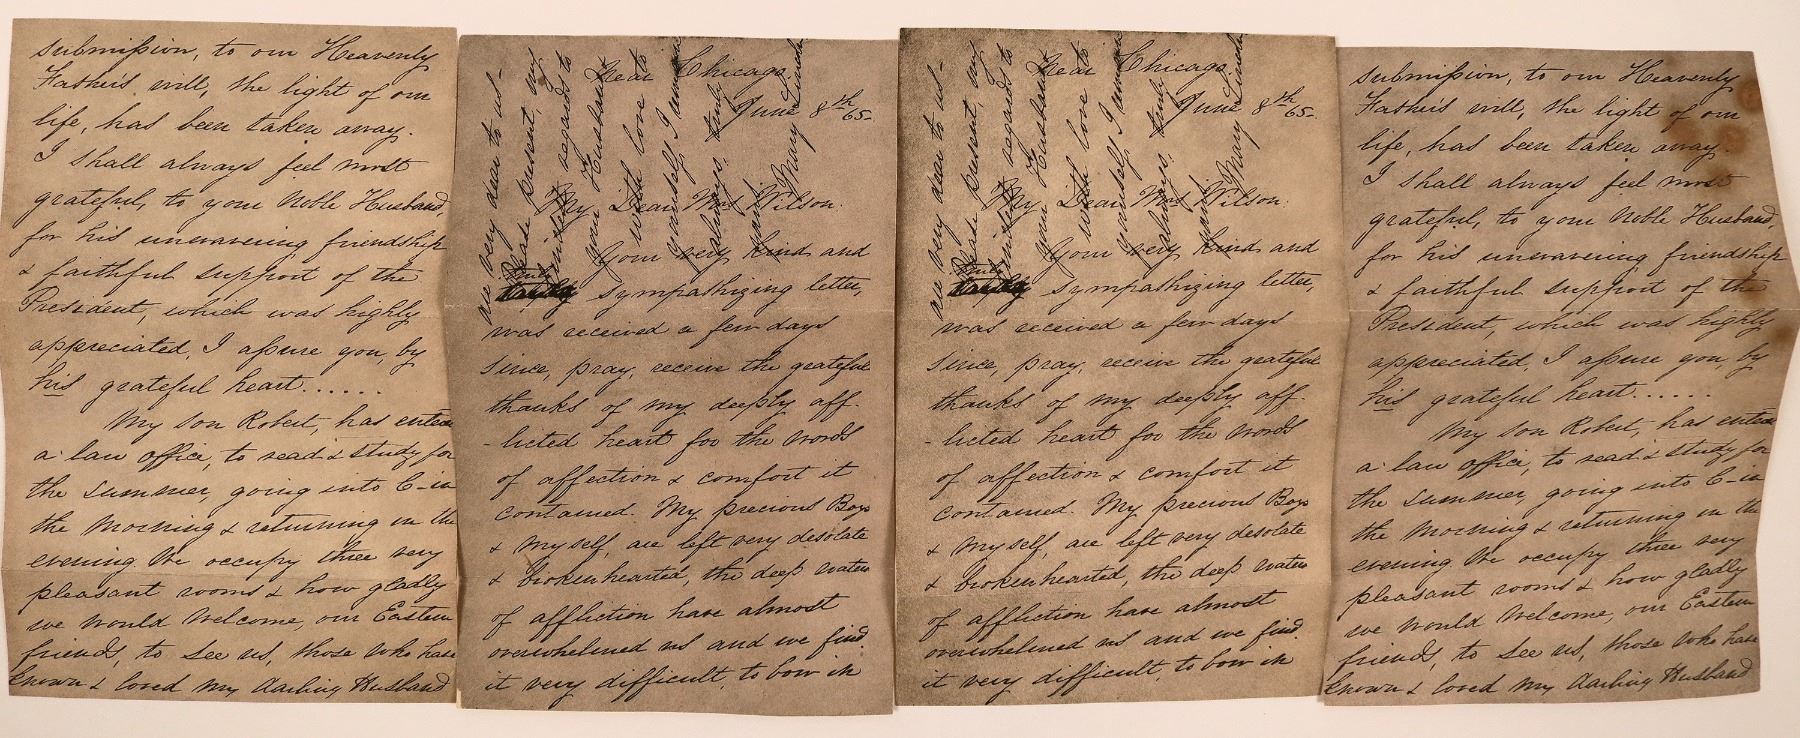 submission, to our Heavenly
Father's will, the light of our
life, has been taken away.
I shall always feel most
grateful, to your Noble Husband,
for his unwavering friendship
& faithful support of the
President, which was highly
appreciated, I assure you, by
his grateful heart......
My son Robert, has entered
a law office, to read & study for
the summer, going into C- in
the morning & returning in the
evening We occupy three very
pleasant rooms & how gladly
we would welcome, our Eastern
friends, to see us, those who have
known & loved my darling Husband
Near Chicago
June 8th 65-
My Dear Mrs Wilson:
Your very kind and
sympathizing letter,
was received a few days
since, pray, receive the grateful
thanks of my deeply aff-
-licted heart for the words
of affection & comfort it
contained. My precious Boys
& myself, are left very desolate
& brokenhearted, the deep waters
of affliction have almost
overwhelmed us and we find
it very difficult, to bow in
are very dear to us-
Please present, my
kindest regards to
your Husband
with love to
yourself I remain
always, truly
yours
Mary Lincoln
Near Chicago
June 8th 65-
My Dear Mrs Wilson:
Your very kind and
sympathizing letter,
was received a few days
since, pray, receive the grateful
thanks of my deeply aff-
-licted heart for the words
of affection & comfort it
contained. My precious Boys
& myself, are left very desolate
& brokenhearted, the deep waters
of affliction have almost
overwhelmed us and we find
it very difficult, to bow in
are very dear to us-
Please present, my
kindest regards to
your Husband
with love to
yourself I remain
always, truly
yours
Mary Lincoln
submission, to our Heavenly
Father's will, the light of our
life, has been taken away.
I shall always feel most
grateful, to your Noble Husband,
for his unwavering friendship
& faithful support of the
President, which was highly
appreciated, I assure you, by
his grateful heart......
My son Robert, has entered
a law office, to read & study for
the summer, going into C- in
the morning & returning in the
evening We occupy three very
pleasant rooms & how gladly
we would welcome, our Eastern
friends, to see us, those who have
known & loved my darling Husband